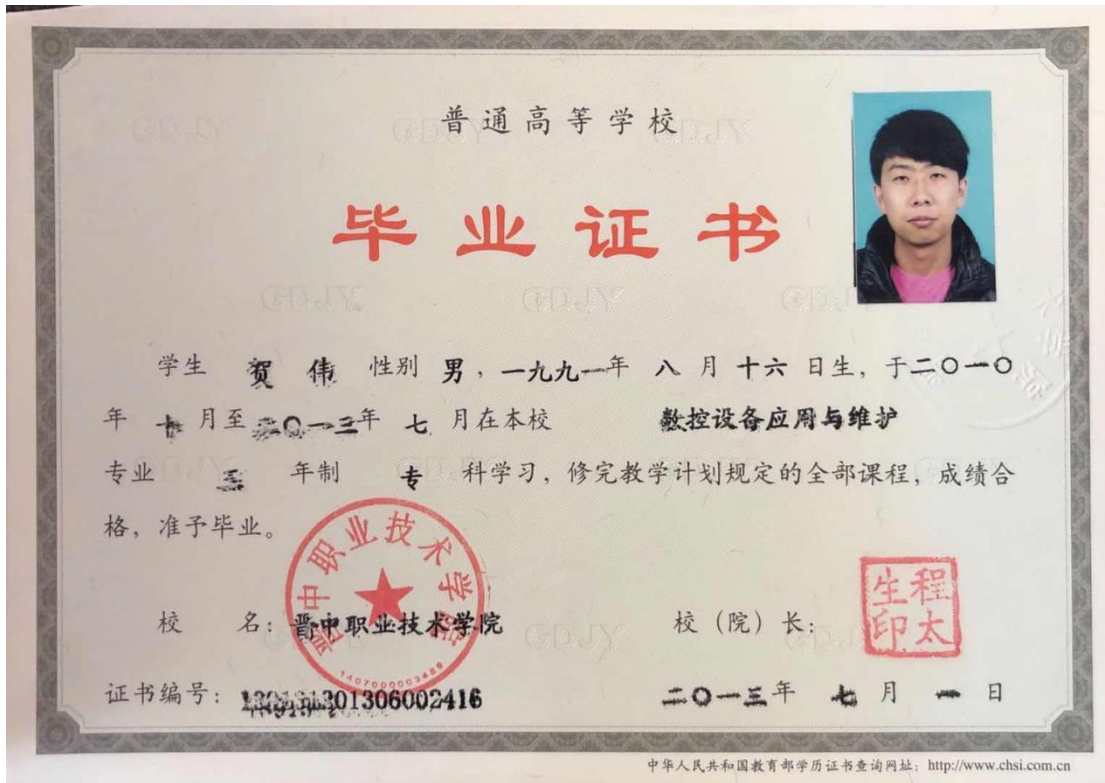 普通高等学校
毕业证书
学生 贺伟 性别 男，一九九一年 八 月 十六 日生，于二〇一〇
年 月至二〇一三年 七 月在本校 数控设备应用与维护
专业 三 年制 专 科学习，修完教学计划规定的全部课程，成绩合
格，准予毕业。
晋中职业技术学院
1407000003489
校 名：晋中职业技术学院 校（院）长：
程太生印
证书编号：01306002416 二〇一三年 七 月 一 日
中华人民共和国教育部学历证书查询网址：http://www.chsi.com.cn